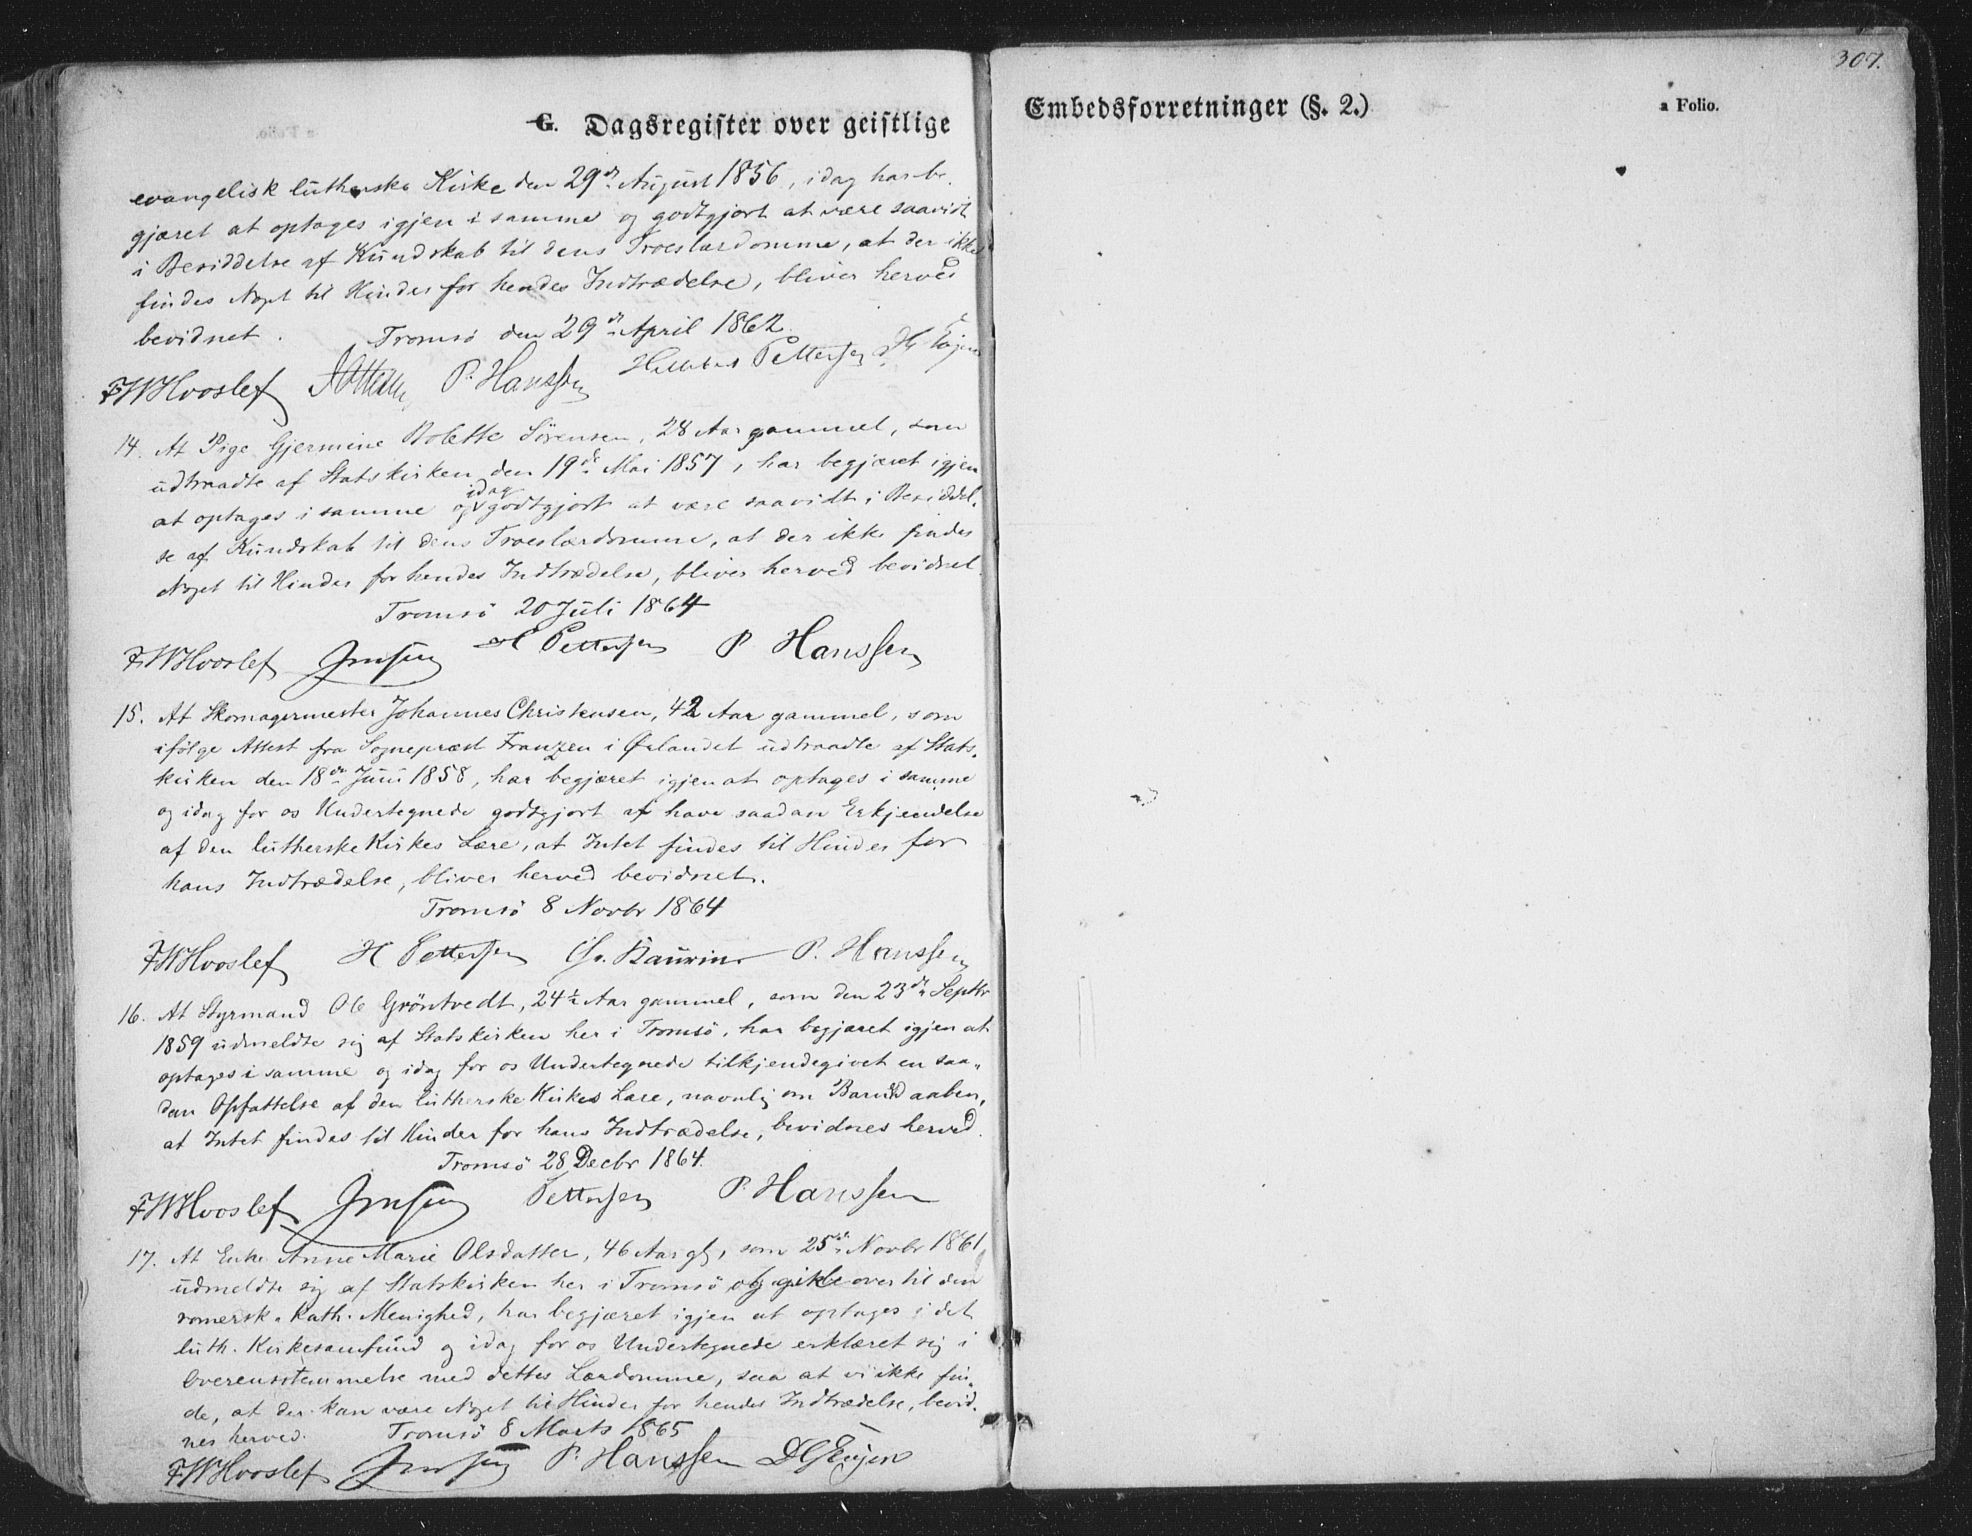 G. Dagsregister over geistlige
evangelisk lutherske Kirke den 29de August 1856, idag har be-
gjæret at optages igjen i samme og godtgjort at være saavidt
i Besiddelse af Kundskab til dens Troeslærdomme, at der ikke
findes Noget til Hinder for hendes Indtrædelse, bliver herved
bevidnet. Tromsö den 29de April 1862.
FWHvoslef P. Hanssen Pettersen
14. At Pige Gjermine Bolette Sörensen, 28 Aar gammel, som
udtraadte af Statskirken den 19de Mai 1857, har begjæret igjen
idag
at optages i samme og godtgjort at være saavidt i Besiddel-
se af Kundskab til dens Troeslærdomme, at der ikke findes
Noget til Hinder for hendes Indtrædelse, bliver herved bevidnet.
Tromsö 20 Juli 1864
FWHvoslef Jensen H Pettersen P Hanssen
15. At Skomagermester Johannes Christensen, 42 Aar gammel, som
ifölge Attest fra Sognepræst Franzen i Ørlandet udtraadte af Stats-
kirken den 18de Juni 1858, har begjæret igjen at optages i samme
og idag for os Undertegnede godtgjort at have saadan Erkjendelse
af den lutherske Kirkes Lære, at Intet findes til Hinder for
hans Indtrædelse, bliver herved bevidnet.
Tromsö 8 Novbr 1864
FWHvoslef H Pettersen P. Hanssen
16. At Styrmand Ole Gröntvedt, 24½ Aar gammel, som den 23de Septbr
1859 udmeldte sig af Statskirken her i Tromsö, har begjæret igjen at
optages i samme og idag for os Undertegnede tilkjendegivet en saa-
dan Opfattelse af den lutherske Kirkes Lære, navnlig om Barnedaaben,
at Intet findes til Hinder for hans Indtrædelse, bevidnes herved.
Tromsö 28 Decbr 1864.
FWHvoslef Jensen Pettersen P. Hanssen
17. At Enke Anne Marie Olsdatter, 46 Aar gl, som 25de Novbr 1861
udmeldte sig af Statskirken her i Tromsö og gikk over til den
romersk-kath. Menighed, har begjæret igjen at optages i det
luth. Kirkesamfund og idag for os Undertegnede erklæret sig i
Overensstemmelse med dettes Lærdomme, saa at vi ikke fin-
de, at der kan være Noget til Hinder for hendes Indtrædelse, bevid-
nes herved. Tromsö 8 Marts 1865
FWHvoslef Jensen P. Hanssen
307.
Embedsforretninger (§. 2.) a Folio.